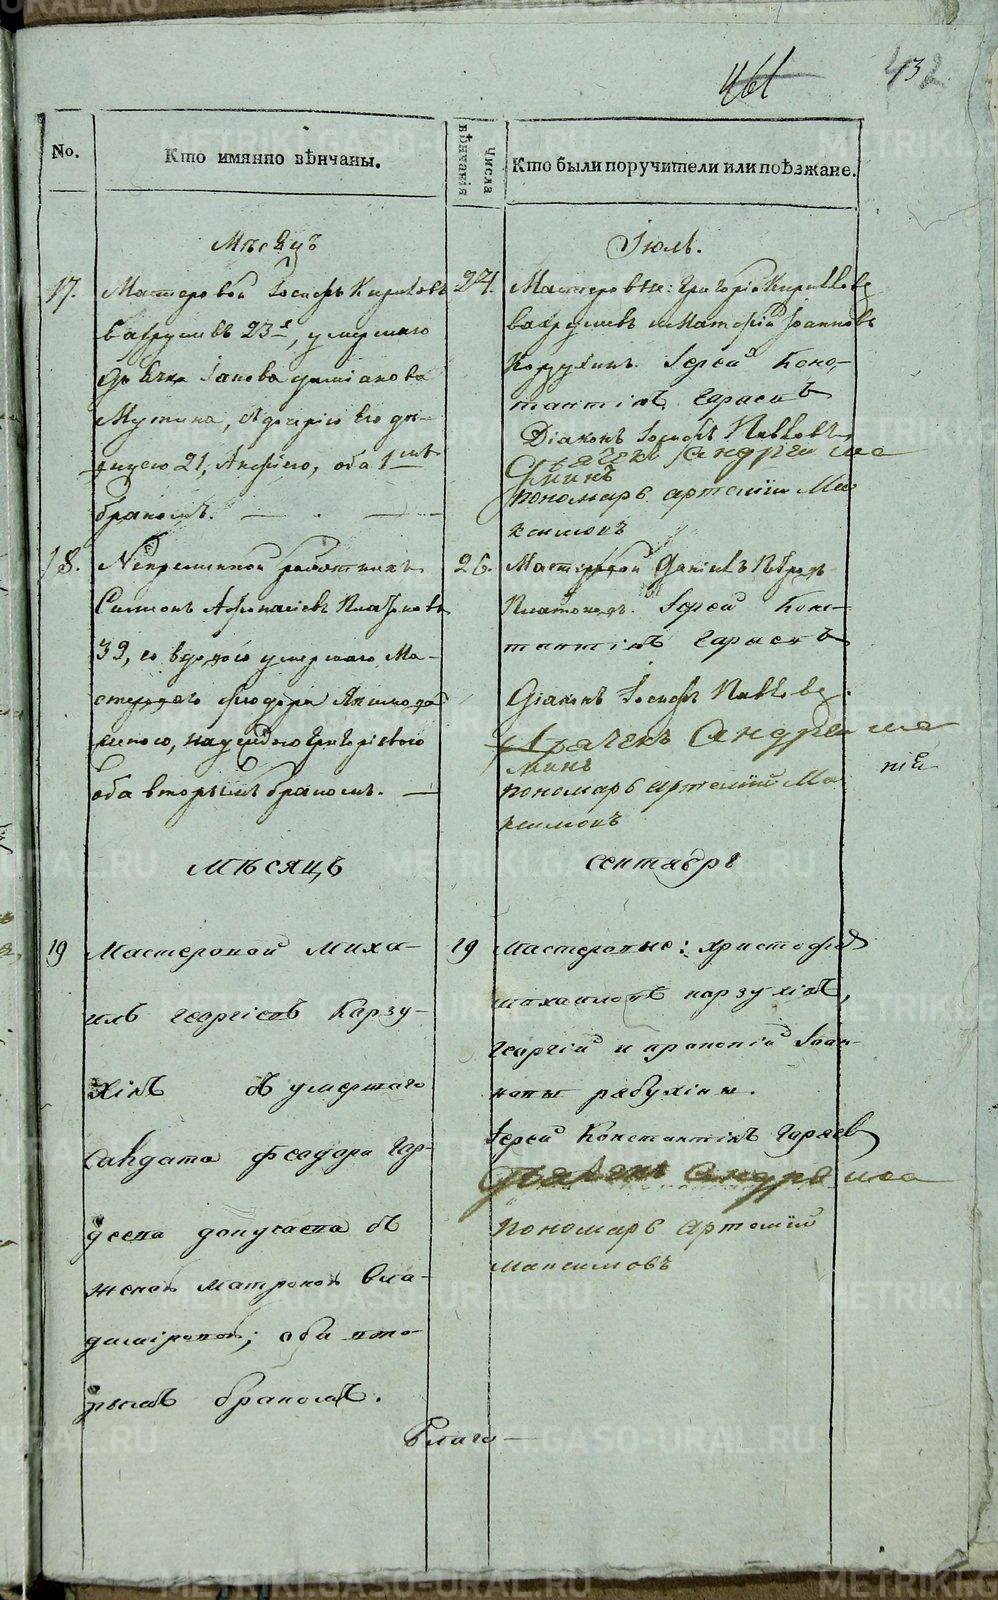 461
432
No.
Кто имянно вѣнчаны.
числа вѣнчанія
Кто были поручители или поѣзжане.
Мѣсецъ
Іюль.
17.
Мастеровой Іосифъ Кириловъ
Вахрушевъ 23, умершаго
Іакова
дочерью его дѣ-
вицею 21, оба 1мъ
бракомъ.
24.
Мастеровые: Григорій Кириловъ
Вахрушевъ и Іоанновъ
Іерей Конс-
тантінъ Гаряевъ
Діаконъ Іосифъ Павловъ
Дьячекъ Андрей Ша
минъ
пономарь Артемій Ма
ксимовъ
18.
Непременной работникъ
Симеонъ Афонасіевъ Платоновъ
39, со вдовою умершаго Ма-
стероваго Феодора
женою, Григоріевою
оба вторымъ бракомъ.
26.
Мастеровой Даніилъ
Платоновъ. Іерей Конс-
тантінъ Гаряевъ
Діаконъ Іосифъ Павловъ.
Дьячекъ Андрей Ша
минъ
пономарь Артемій Ма
ксимовъ
ній
мѣсяцъ
сентябрь
19
Мастеровой Миха-
илъ Георгіевъ Карзу-
хінъ съ умершаго
Салдата Феодора Гор-
деева дочерью съ
женой Матроной Вла-
диміровой; оба вто-
рымъ бракомъ.
19
Мастеровые: Христофоръ
Михаиловъ Карзухінъ,
Георгій и Прокопій Іоан-
новы Рябухіны.
Іерей Константінъ Гаряевъ
Дьячекъ Андрей Ша
пономарь Артемій
Максимовъ
Благо-
METRIKI.GASO-URAL.RU